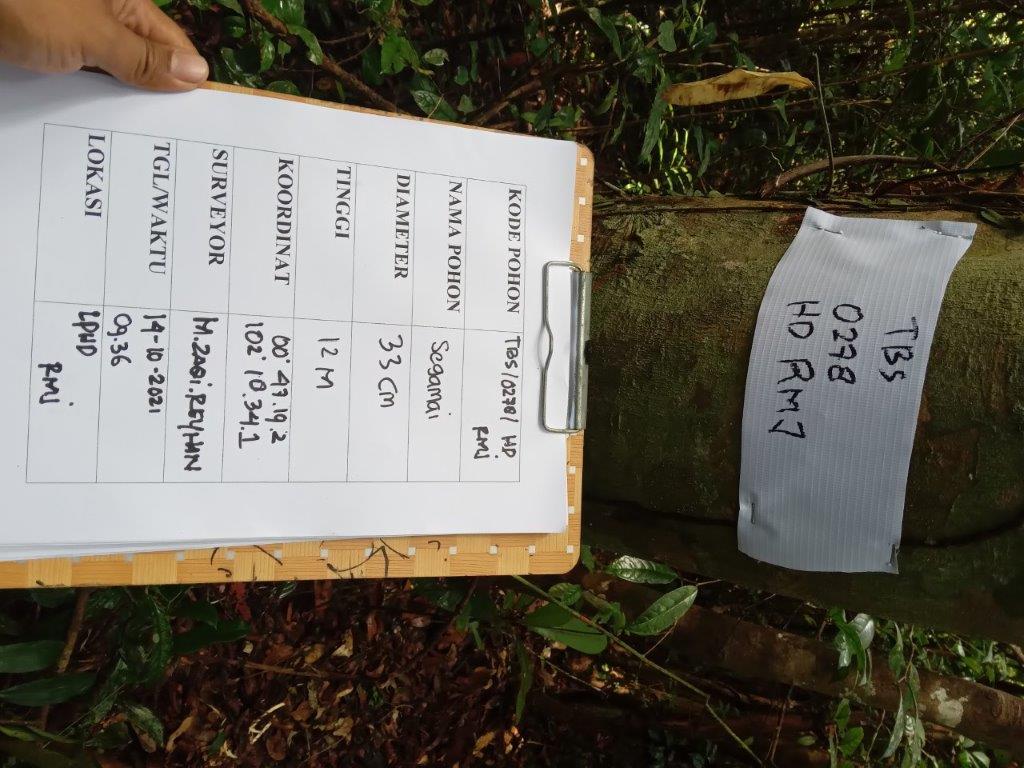 TBS
0278
HD RMJ
KODE POHON TBS/0278/ HD
RMJ
NAMA POHON Segamai
DIAMETER 33 cm
TINGGI 12 M
KOORDINAT 00° 47.19.2
102° 10.34.1
SURVEYOR M.ZAQI.REYHAN
TGL/WAKTU 14-10-2021
09.36
LOKASI LPHD
RMJ